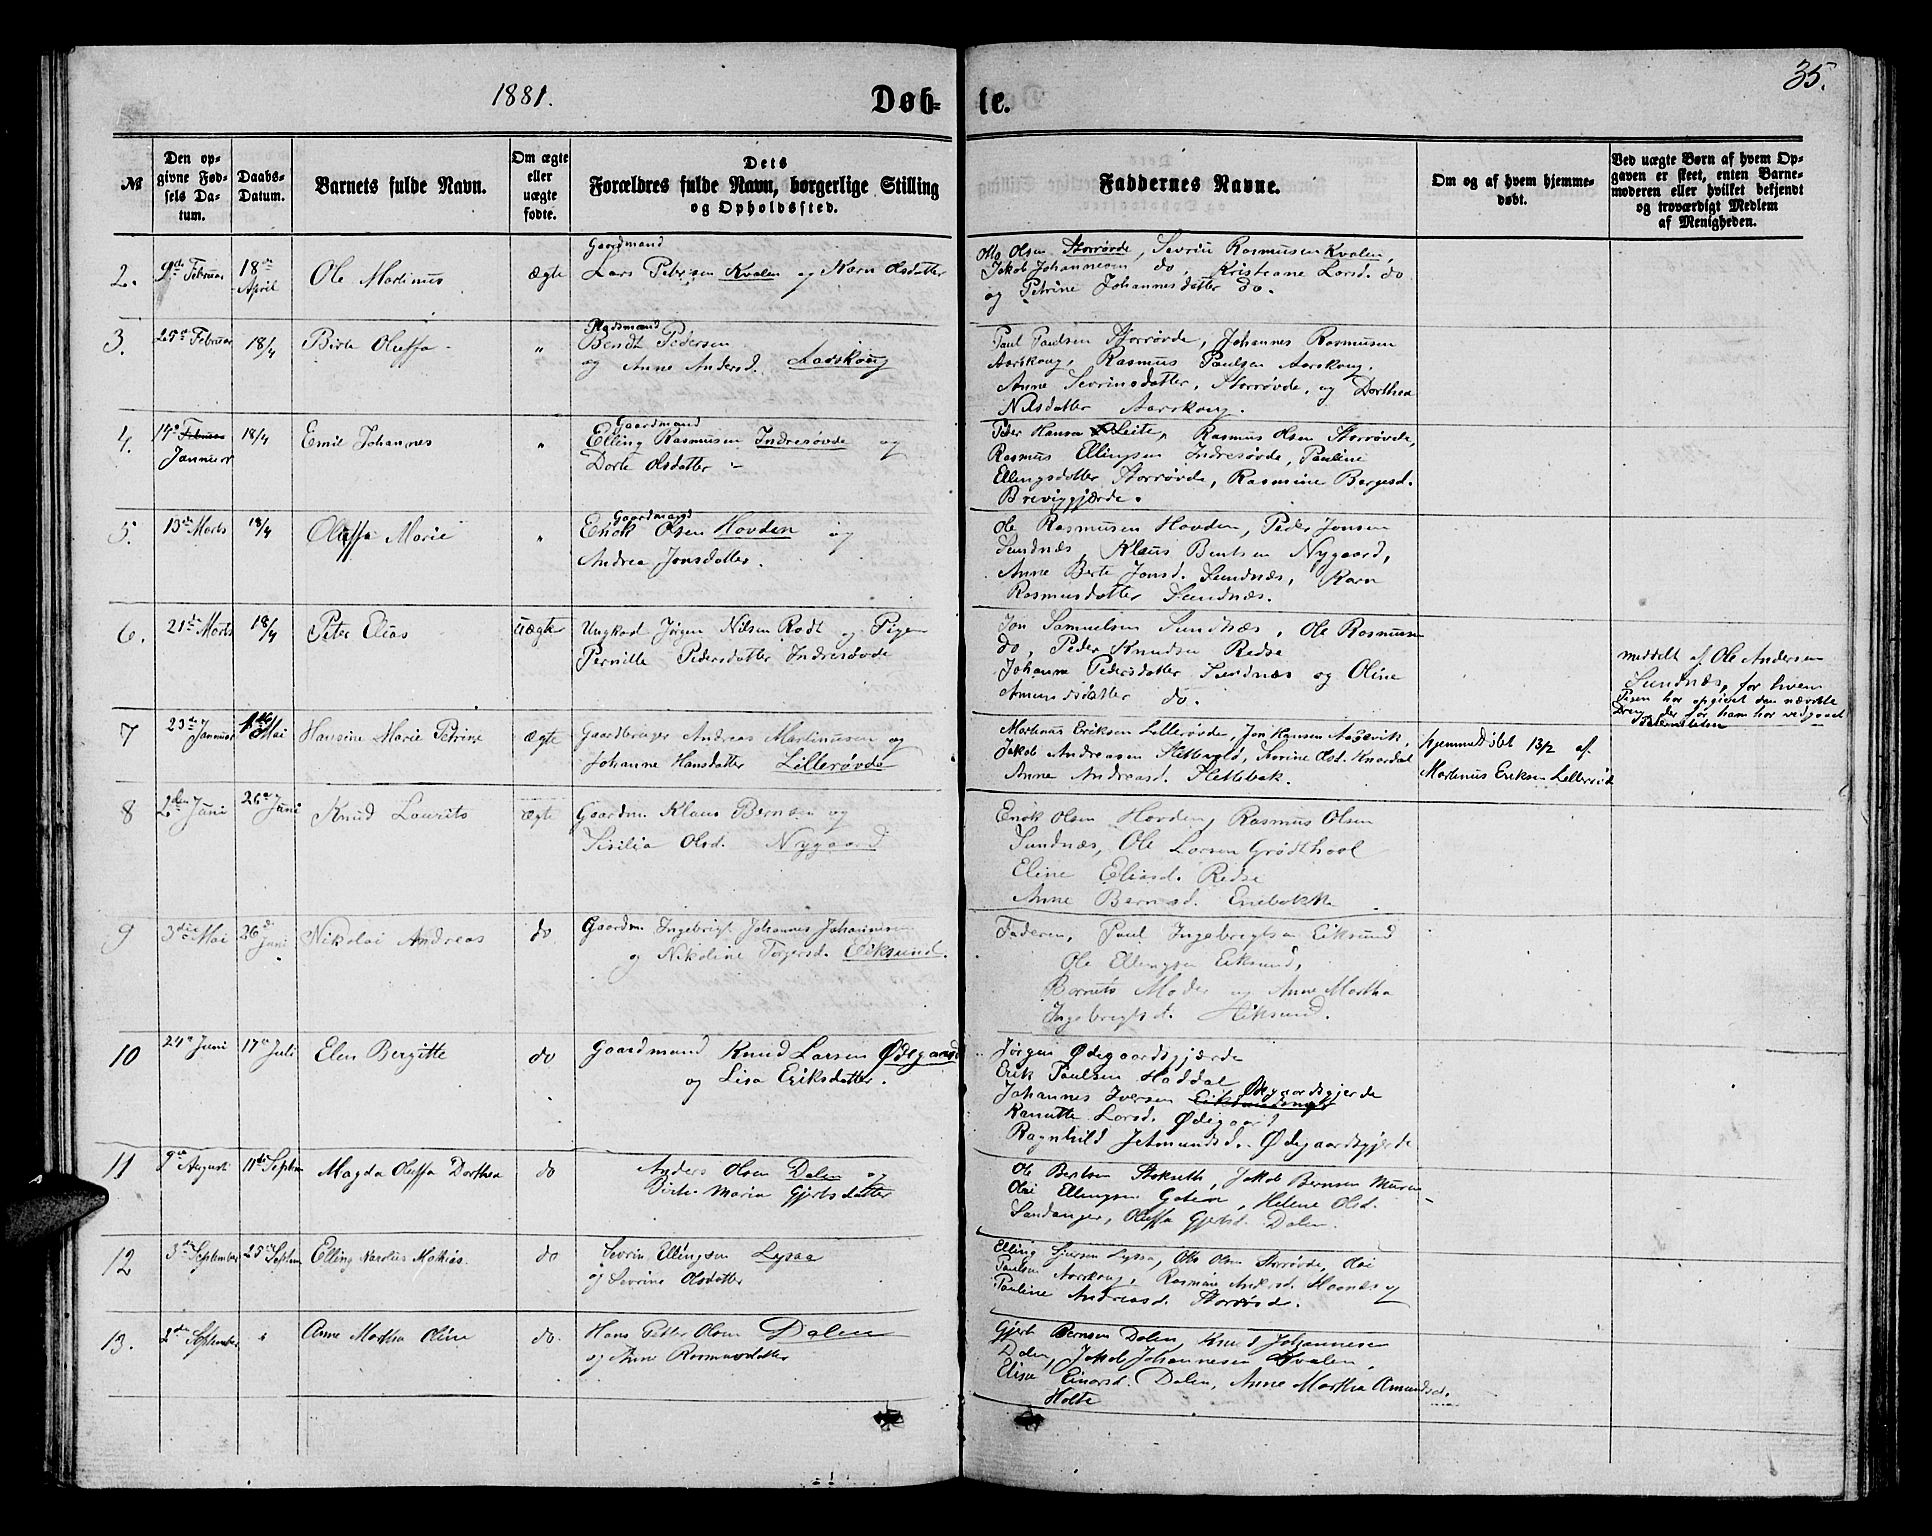 1881.
Døb-
te.
35.
№
Den op-
givne Fød-
sels Da-
tum.
Daabs-
Datum.
Barnets fulde Navn.
Om ægte
eller
uægte
fødte.
Dets
Forældres fulde Navn, borgerlige Stilling
og Opholdssted.
Faddernes Navne.
Om og af hvem hjemme-
døbt.
Ved uægte Børn af hvem Op-
gaven er skeet, enten Barne-
moderen eller hvilket bekjendt
og troværdigt Medlem
af Menigheden.
2.
9de Februar
18de
April
Ole Martinus
ægte
Gaardmand
Lars Petersen Kvalen og Karn Olsdatter
Otto Olsen Storrøvde, Sevrin Rasmussen Kvalen,
Jakob Johannesen do, Kristiane Larsd. do
og Petrine Johannesdatter do.
3.
25de Februar
18/4
Birte Oluffa
"
Pladsmand
Bendt Pedersen
og Anne Andersd. Aarskoug
Paul Paulsen Storrøvde, Johannes Rasmusen
Aarskoug, Rasmus Paulsen Aarskoug,
Anne Sevrinsdatter, Storrøvde, og Dorthea
Nilsdatter Aarskoug.
4.
14de Februar
Januar
18/4
Emil Johannes
"
Gaardmand
Elling Rasmusen Indresøvde og
Dorte Olsdatter
Peder Hansen Leite, Rasmus Olsen Storrøvde,
Rasmus Ellingsen Indresøvde, Pauline
Ellingsdatter Storrøvde, Rasmine Bergesd.
Breviggjærde.
5.
13de Marts
18/4
Oluffa Marie
"
Gaardmand
Enok Olsen Hovden og
Andrea Jonsdatter.
Ole Rasmusen Hovden, Peder Jonsen
Sundnæs, Klaus Bentsen Nygaard,
Anne Berte Jonsd. Sundnæs, Karn
Rasmusdatter Sundnæs.
6.
21de Marts
18/4
Peter Elias
uægte
Ungkarl Jørgen Nilsen Rødt og Pigen
Pernille Pedersdatter Indresøvde
Jon Samuelsen Sundnæs, Ole Rasmusen
do, Peder Knudsen Redse
Johanne Pedersdatter Sundnæs og Oline
Amundsdatter do.
meddelt af Ole Andersen
Sundnæs, for hvem
Pigen har opgivet den nævnte
Dreng, der for ham har vedgaaet
Paterniteten
7
23de Januar
Mai
Hansine Marie Petrine
ægte
Gaardbruger Andreas Martinusen og
Johanne Hansdatter Lillerøvde
Martinus Eriksen Lillerøvde, Jon Hansen Aasevik,
Jakob Andreasen Flettebylø, Sevrine Olsd. Knardal
Anne Andreasd. Flettebak.
hjemmedøbt 13/2 af
Martinus Eriksen Lillerøvde
8
2den Juni
26de Juni
Knud Laurits
ægte
Gaardm. Klaus Bernsen og
Sisilia Olsd. Nygaard
Enok Olsen Hovden, Rasmus Olsen
Sundnæs, Ole Larsen Grødthool
Eline Eliasd. Redse
Anne Bernsd. Enebakk
9
3die Mai
26de
Juni
Nikolai Andreas
do
Gaardm. Ingebrigt Johannes Johannesen
og Nikoline Torgersd. Eiksund.
Faderen, Paul Ingebrigtsen Eiksund
Ole Ellingsen Eiksund,
Barnets Moder og Anne Martha
Ingebrigtsd. Eiksund.
10
24de Juni
17de Juli
Elen Bergitte
do
Gaardmand Knud Larsen Ødegaard
og Lisa Eriksdatter.
Jørgen Ødegaardsgjærde
Erik Paulsen Haddal
Johannes Iversen Ødegaardsgjerde
Ranutte Larsd. Ødegaard
Ragnhild Jetmundsd. Ødegaardsgjerde
11
9de August
11de Septbr
Magda Oluffa Dorthea
do
Anders Olsen Dalen og
Birte Maria Gjertsdatter
Ole Bertsen Stokseth, Jakob Bernsen Muren
Olai Ellingsen Goten, Helene Olsd.
Sandanger, Oluffa Gjertsd. Dalen.
12
3de September
25de Septbr
Elling Nardius Mathias.
do
Sevrin Ellingsen Lysaa
og Sevrine Olsdatter
Elling Sjursen Lyssa, Otto Olsen Storrøvde, Olai
Paulsen Aarskoug, Rasmine Andersd. Moenes og
Pauline Andreasd. Storrøvde.
13.
2de September
Anne Martha Oline
do.
Hans Petter Olsen Dalen
og Anne Rasmusdatter
Gjert Bernsen Dalen, Knud Johannesen
Dalen, Jakob Johannesen Kvalen,
Elisa Einarsd. Dalen, Anne Martha Amundsd.
Holte